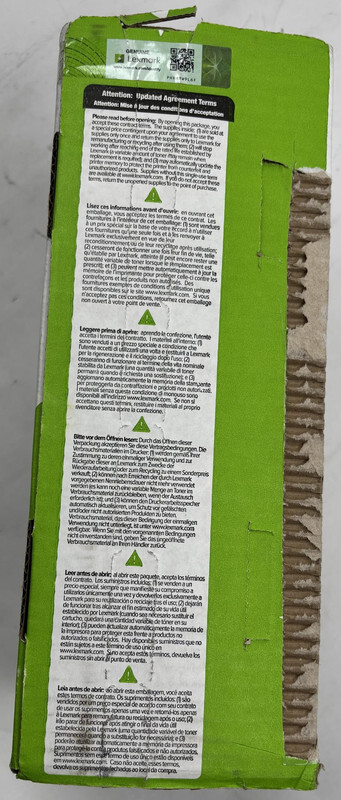 GENUINE
Lexmark
Attention: Updated Agreement Terms
Attention: Mise à jour des conditions d'acceptation
Please read before opening: By opening this package, you
accept these contract terms. The supplies inside: (1) are sold at
a special price contingent upon your agreement to use the
supplies only once and return the supplies only to Lexmark for
remanufacturing or recycling after using them; (2) will stop
working after reaching the end of the rated life established by
Lexmark (a variable amount of toner may remain when
replacement is required); and (3) may automatically update the
printer memory to protect the printer from counterfeit and
unauthorized products. Supplies without this single-use term
are available at www.lexmark.com. If you do not accept these
terms, return the unopened supplies to the point of purchase.
Lisez ces informations avant d'ouvrir: en ouvrant cet
emballage, vous acceptez les termes de ce contrat. Les
fournitures à l'intérieur de cet emballage: (1) sont vendues
à un prix spécial sur la base de votre accord à n'utiliser
ces fournitures qu'une seule fois et à les renvoyer à
Lexmark exclusivement en vue de leur
reconditionnement ou de leur recyclage après utilisation;
(2) cesseront de fonctionner une fois leur fin de vie, telle
qu'établie par Lexmark, atteinte (il peut encore rester une
quantité variable de toner lorsque le remplacement est
prescrit); et (3) peuvent mettre automatiquement à jour la
mémoire de l'imprimante pour protéger celle-ci contre les
contrefaçons et les produits non autorisés. Des
fournitures exemptes de conditions d'utilisation unique
sont disponibles sur le site www.lexmark.com. Si vous
n'acceptez pas ces conditions, retournez cet emballage
non ouvert à votre point de vente.
Leggere prima di aprire: aprendo la confezione, l'utente
accetta i termini del contratto. I materiali all'interno: (1)
sono venduti a un prezzo speciale a condizione che
l'utente accetti di utilizzarli una volta e restituirli a Lexmark
per la rigenerazione o il riciclaggio dopo l'uso; (2)
cesseranno di funzionare al termine della vita nominale
stabilita da Lexmark (una quantità variabile di toner
permarrà quando è richiesta una sostituzione); e (3)
aggiornano automaticamente la memoria della stampante
per proteggerla da contraffazioni e prodotti non autorizzati.
I materiali senza questa condizione di monouso sono
disponibili all'indirizzo www.lexmark.com. Se non si
accettano questi termini, restituire i materiali al proprio
rivenditore senza aprire la confezione.
Bitte vor dem Öffnen lesen: Durch das Öffnen dieser
Verpackung akzeptieren Sie diese Vertragsbedingungen. Die
Verbrauchsmaterialien im Drucker: (1) werden gemäß Ihrer
Zustimmung zu deren einmaliger Verwendung und zur
Rückgabe dieser an Lexmark zum Zwecke der
Wiederaufarbeitung oder zum Recycling zu einem Sonderpreis
verkauft; (2) können nach Erreichen der durch Lexmark
vorgegebenen Nennlebensdauer nicht mehr verwendet
werden (es kann noch eine variable Menge an Toner im
Verbrauchsmaterial zurückbleiben, wenn der Austausch
erforderlich ist); und (3) können den Druckerarbeitsspeicher
automatisch aktualisieren, um Schutz vor gefälschten
und/oder nicht autorisierten Produkten zu bieten.
Verbrauchsmaterial, das dieser Bedingung der einmaligen
Verwendung nicht unterliegt, ist unter www.lexmark.com
verfügbar. Wenn Sie mit den vorgenannten Bedingungen
nicht einverstanden sind, geben Sie das ungeöffnete
Verbrauchsmaterial an Ihren Händler zurück.
Leer antes de abrir: al abrir este paquete, acepta los términos
del contrato. Los suministros incluidos: (1) se venden a un
precio especial, siempre que manifieste su compromiso a
utilizarlos únicamente una vez y devolverlos exclusivamente a
Lexmark para su reutilización o reciclaje tras el uso; (2) dejarán
de funcionar tras alcanzar el fin estimado de su vida útil
establecido por Lexmark (cuando sea necesario sustituir el
cartucho, quedará una cantidad variable de tóner en su
interior); (3) pueden actualizar automáticamente la memoria de
la impresora para proteger esta frente a productos no
autorizados o falsificados. Hay disponibles suministros que no
están sujetos a este término de uso único en
www.lexmark.com. Si no acepta estos términos, devuelva los
suministros sin abrir al punto de venta.
Leia antes de abrir: ao abrir esta embalagem, você aceita
estes termos de contrato. Os suprimentos inclusos: (1) são
vendidos por um preço especial de acordo com seu contrato
de usar os suprimentos apenas uma vez e retorná-los apenas
à Lexmark para remanufatura ou reciclagem após o uso; (2)
irão parar de funcionar após atingir o final da vida útil
estabelecida pela Lexmark (uma quantidade variável de toner
permanecerá quando a substituição for necessária); e (3)
poderão atualizar automaticamente a memória da impressora
para protegê-la contra produtos falsificados e não autorizados.
Suprimentos sem esse termo de uso único estão disponíveis
em www.lexmark.com. Caso não aceite esses termos,
devolva os suprimentos fechados ao local da compra.